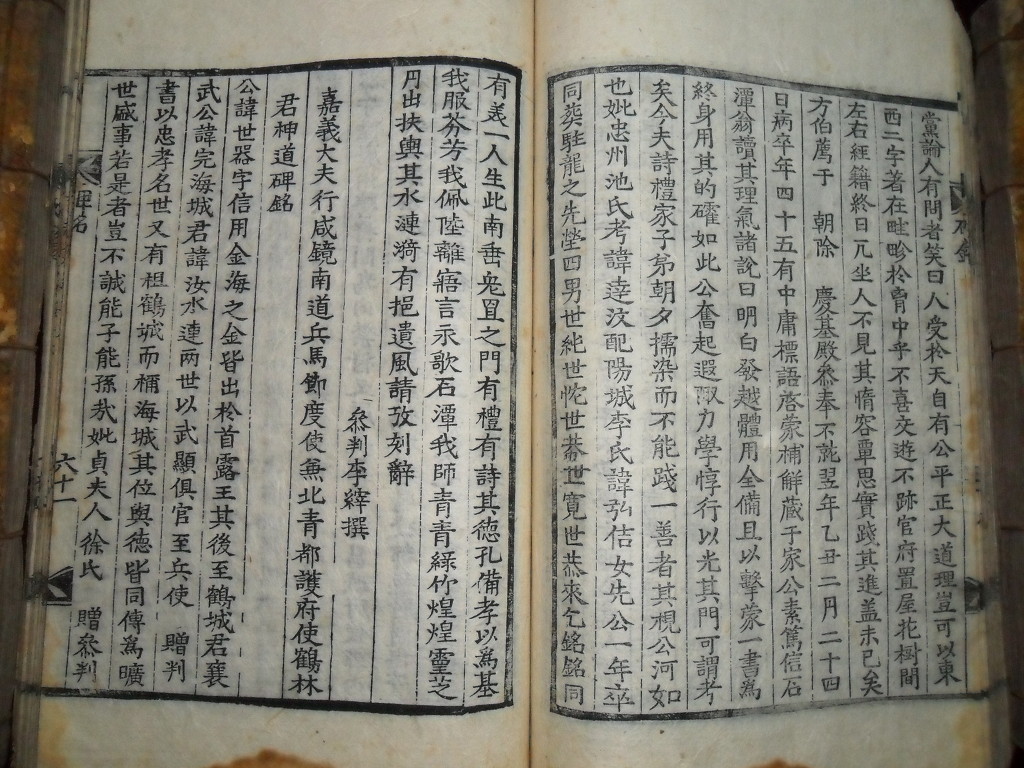 黨論人有問者笑曰人受於天自有公平正大道理豈可以東
西二字著在畦畛於胷中乎不喜交遊不跡官府置屋花樹間
左右經籍終日兀坐人不見其惰容覃思實踐其進盖未已矣
方伯薦于 朝除 慶基殿叅奉不就翌年乙丑二月二十四
日病卒年四十五有中庸標語啓蒙補解蔵于家公素篤信石
潭翁讀其理氣諸說曰明白發越體用全備且以擊蒙一書爲
終身用其的礭如此公奮起遐陬力學惇行以光其門可謂孝
矣今夫詩禮家子苐朝夕擩染而不能踐一善者其視公河如
也妣忠州池氏考諱達汶配陽城李氏諱弘佶女先公一年卒
同葬駐龍之先塋四男世紀世㤞世綦世寛世恭來乞銘銘同
有美一人生此南垂兎罝之門有禮有詩其德孔備孝以爲基
我服芬芳我佩陸離寤言永歌石潭我師青青綠竹煌煌靈芝
丹出扶輿其水漣漪有挹遺風請攷刻辭
叅判李縡撰
嘉義大夫行咸鏡南道兵馬節度使兼北青都護府使鶴林
君神道碑銘
公諱世器字信用金海之金皆出於首露王其後至鶴城君襄
武公諱完海城君諱汝水連两世以武顯俱官至兵使 贈判
書以忠孝名世又有祖鶴城而稱海城其位與德皆同傳爲曠
世盛事若是者豈不誠能子能孫㢤妣貞夫人徐氏 贈叅判
碑銘
六十一